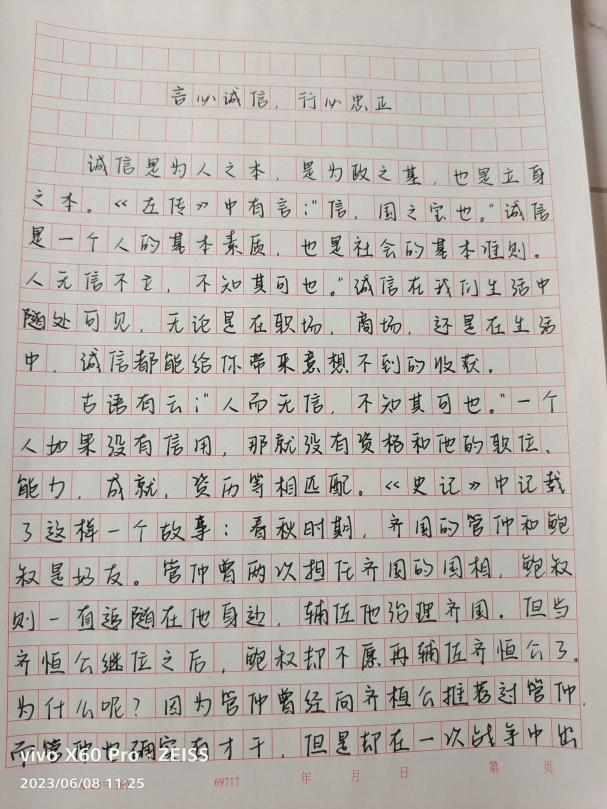 言必诚信，行必忠正
诚信是为人之本，是为政之基，也是立身
之本。《左传》中有言：“信，国之宝也。”诚信
是一个人的基本素质，也是社会的基本准则。
人无信不立，不知其可也。”诚信在我们生活中
随处可见，无论是在职场，商场，还是在生活
中，诚信都能给你带来意想不到的收获。
古语有云：“人而无信，不知其可也。”一个
人如果没有信用，那就没有资格和他的职位、
能力，成就，资历等相匹配。《史记》中记载
了这样一个故事：春秋时期，齐国的管仲和鲍
叔是好友。管仲曾两次担任齐国的国相，鲍叔
则一直追随在他身边，辅佐他治理齐国。但当
齐恒公继位之后，鲍叔却不愿再辅佐齐恒公了。
为什么呢？因为管仲曾经向齐桓公推荐过管仲，
而管仲也确实有才干，但是却在一次战争中出
vivo X60 Pro+ | ZEISS
2023/06/08 11:25
69717
年 月 日
第 页